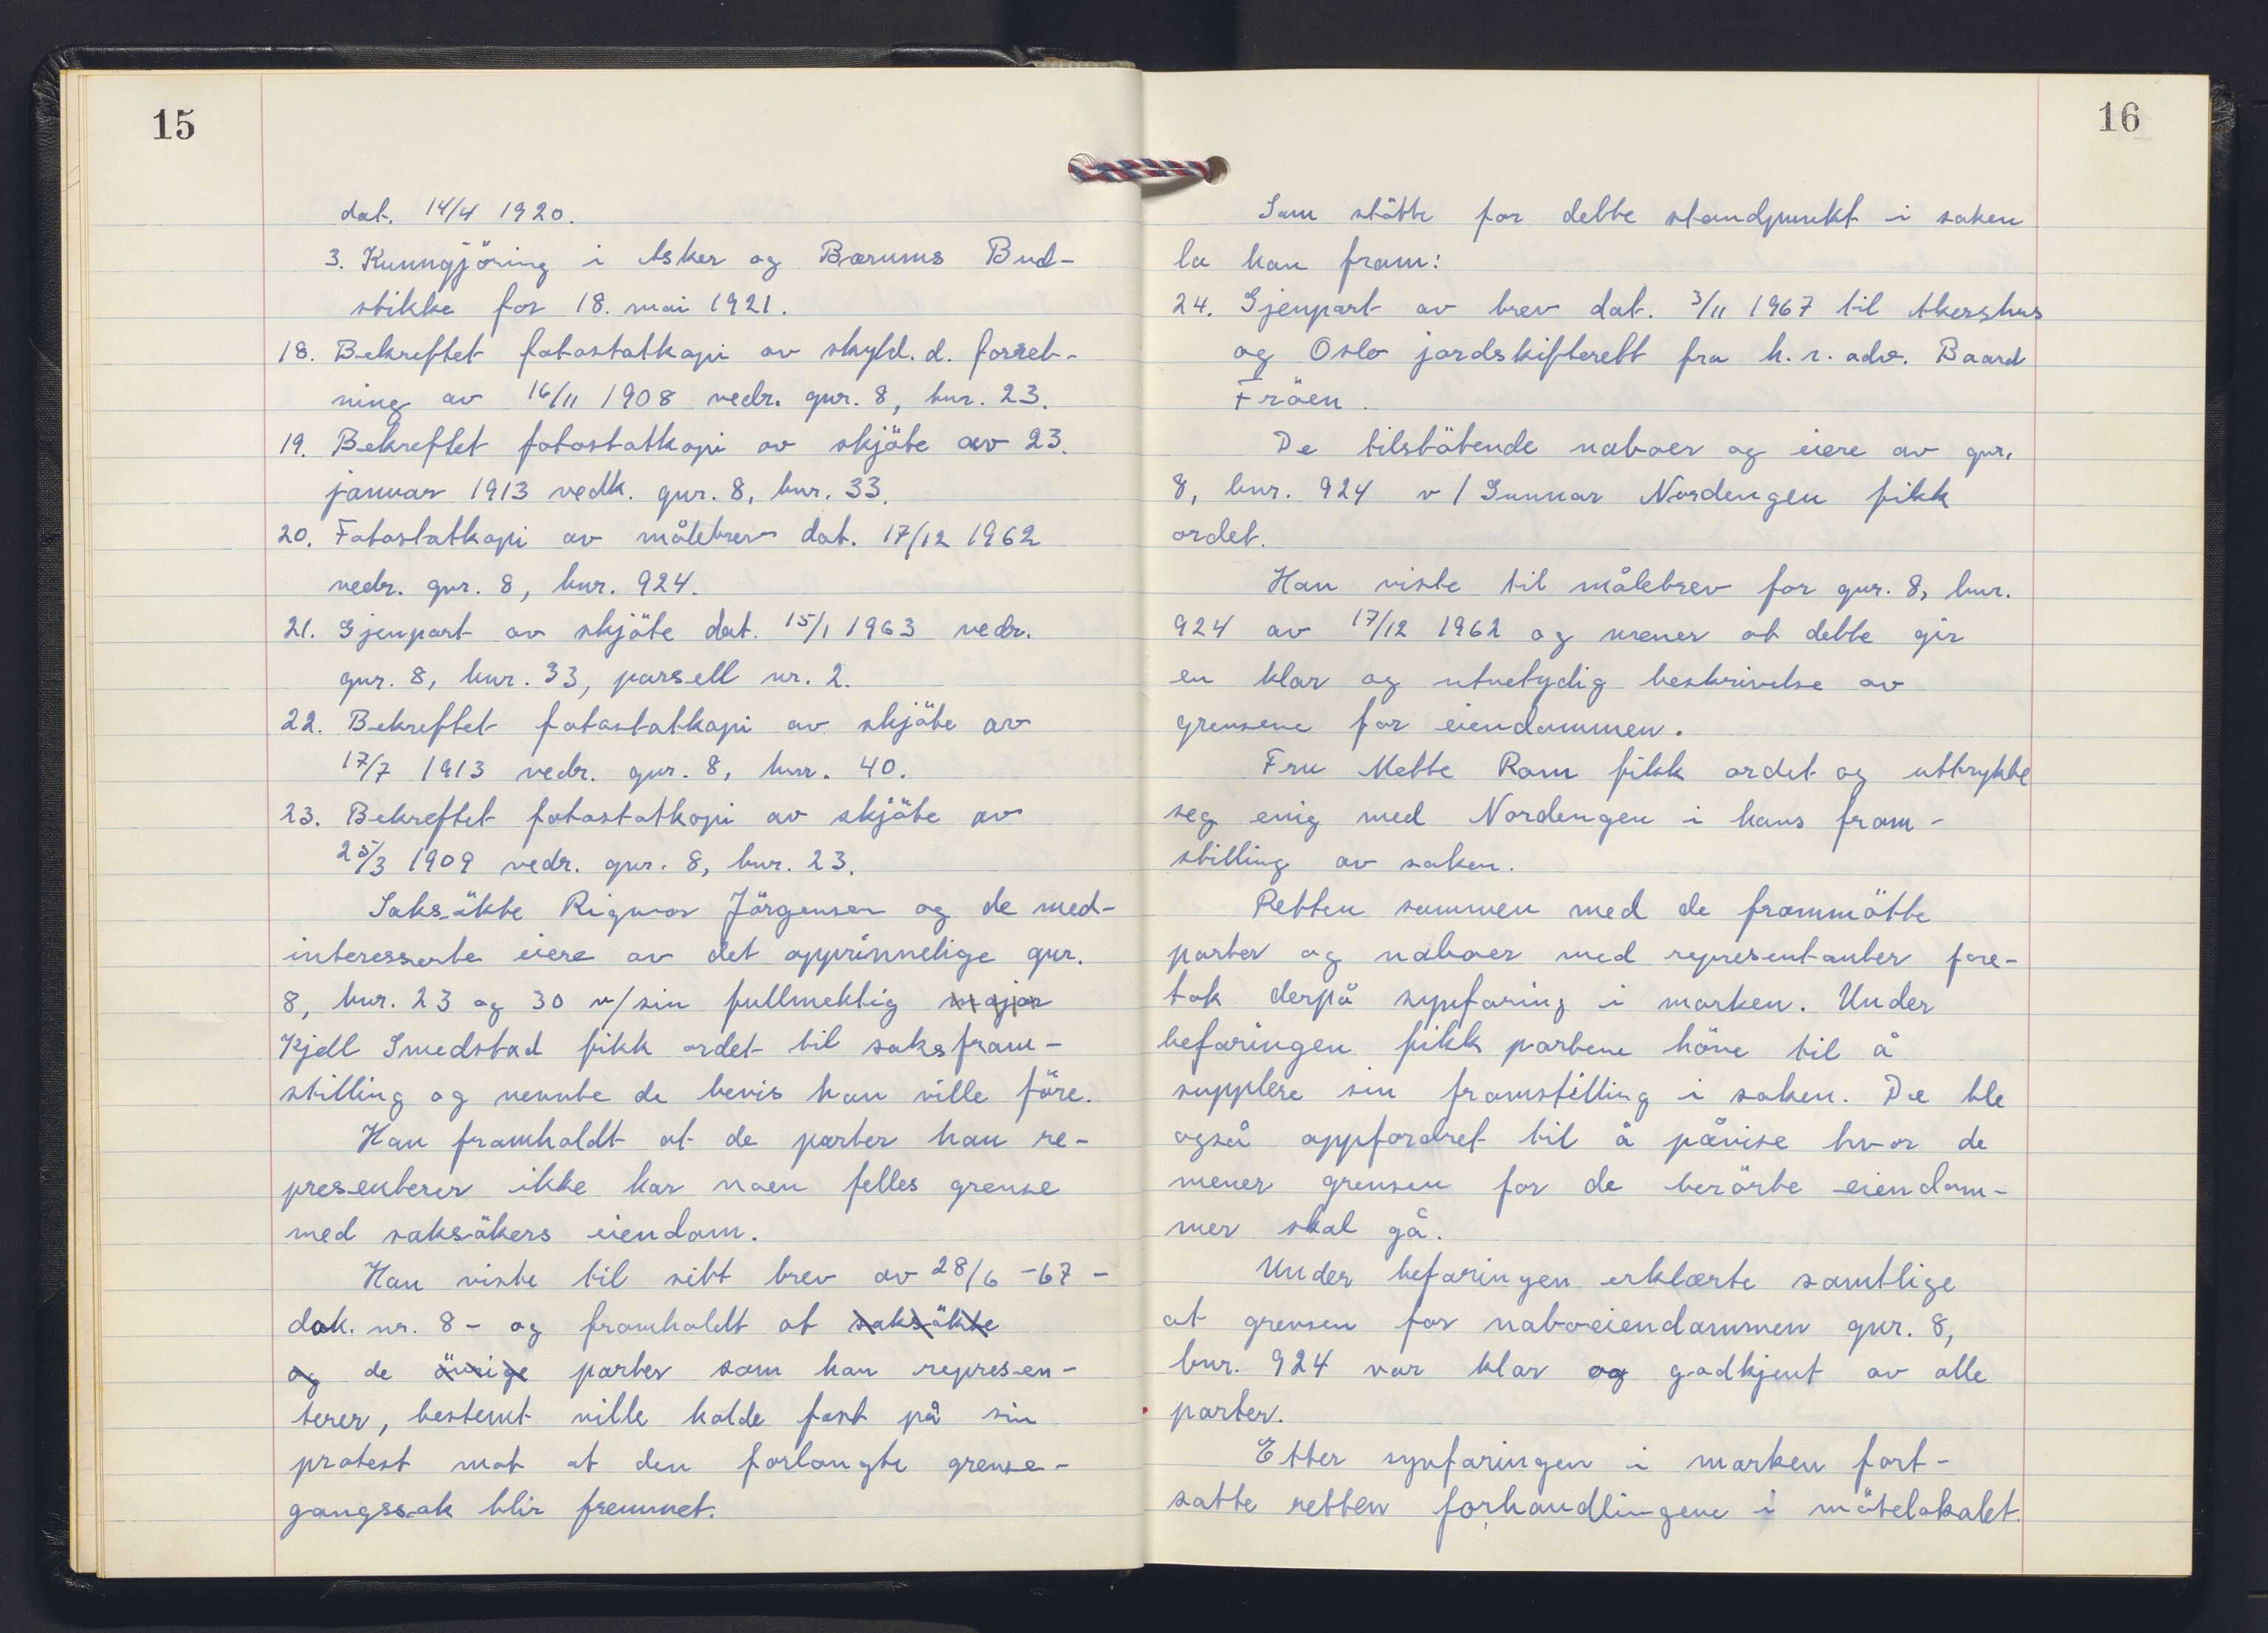 15
dat. 14/4 1920.
3. Kunngjöring i Asker og Bærums Bud-
stikke for 18. mai 1921.
18. Bekreftet fotostatkopi av skyld. d. forret-
ning av 16/11 1908 vedr. gnr. 8, bnr. 23.
19. Bekreftet fotostatkopi av skjöte av 23.
januar 1913 vedk. gnr. 8, bnr. 33.
20. Fotostatkopi av målebrev dat. 17/12 1962
vedr. gnr. 8, bnr. 924.
21. Gjenpart av skjöte dat. 15/1 1963 vedr.
gnr. 8, bnr. 33, parsell nr. 2.
22. Bekreftet fotostatkopi av skjöte av
17/7 1913 vedr. gnr. 8, bnr. 40.
23. Bekreftet fotostatkopi av skjöte av
25/3 1909 vedr. gnr. 8, bnr. 23.
Saksökte Rigmor Jörgensen og de med-
interesserte eiere av det opprinnelige gnr.
8, bnr. 23 og 30 v/ sin fullmektig major
Kjell Smedstad fikk ordet til saksfram-
stilling og nevnte de bevis han ville före.
Han framholdt at de parter han re-
presenterer ikke har noen felles grense
med saksökers eiendom.
Han viste til sitt brev av 28/6 -67 -
dok. nr. 8 - og framholdt at saksökte
og de övrige parter som han represen-
terer, bestemt ville holde fast på sin
protest mot at den forlangte grense-
gangssak blir fremmet.
16
Som stötte for dette standpunkt i saken
la han fram:
24. Gjenpart av brev dat. 3/11 1967 til Akershus
og Oslo jordskifterett fra h.r. adv. Baard
Fröen.
De tilstötende naboer og eiere av gnr.
8, bnr. 924 v/ Gunnar Nordengen fikk
ordet.
Han viste til målebrev for gnr. 8, bnr.
924 av 17/12 1962 og mener at dette gir
en klar og utvetydig beskrivelse av
grensene for eiendommen.
Fru Mette Ram fikk ordet og uttrykte
seg enig med Nordengen i hans fram-
stilling av saken.
Retten sammen med de frammötte
parter og naboer med representanter fore-
tok derpå synfaring i marken. Under
befaringen fikk partene höve til å
supplere sin framstilling i saken. De ble
også oppfordret til å påvise hvor de
mener grensen for de berörte eiendom-
mer skal gå.
Under befaringen erklærte samtlige
at grensen for naboeiendommen gnr. 8,
bnr. 924 var klar og godkjent av alle
parter.
Etter synfaringen i marken fort-
satte retten forhandlingene i mötelokalet.